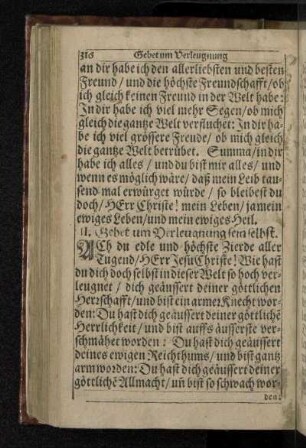 316 Gebet um Verleugnung
an dir habe ich den allerliebsten und besten
Freund / und die höchste Freundschafft / ob
ich gleich keinen Freund in der Welt habe:
In dir habe ich viel mehr Segen / ob mich
gleich die gantze Welt verfluchet: In dir ha-
be ich viel grössere Freude / ob mich gleich
die gantze Welt betrübet. Summa / in dir
habe ich alles / und du bist mir alles / und
wenn es möglich wäre / daß mein Leib tau-
send mal erwürget würde / so bleibest du
doch / HErr Christe! mein Leben / ja mein
ewiges Leben / und mein ewiges Heil.
11. Gebet um Verleugnung sein selbst.
ACh du edle und höchste Zierde aller
Tugend / HErr JEsu Christe! Wie hast
du dich doch selbst in dieser Welt so hoch ver-
leugnet / dich geäussert deiner göttlichen
Herrschafft / und bist ein armer Knecht wor-
den: Du hast dich geäussert deiner göttlichē
Herrlichkeit / und bist auffs äusserste ver-
schmähet worden: Du hast dich geäussert
deines ewigen Reichthums / und bist gantz
arm worden: Du hast dich geäussert deiner
göttlichē Allmacht / uñ bist so schwach wor-
den: